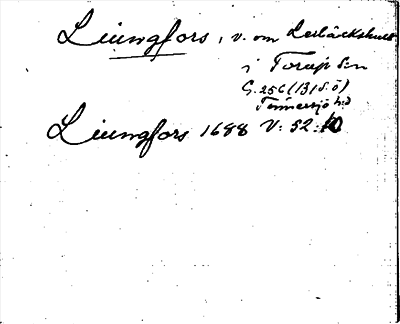 Liungfors, v. om Lerbäckshult
i Torup sn
G. 256 (B1 S.Ö)
Femsjö hd
Liungfors 1688 V: 52: 10